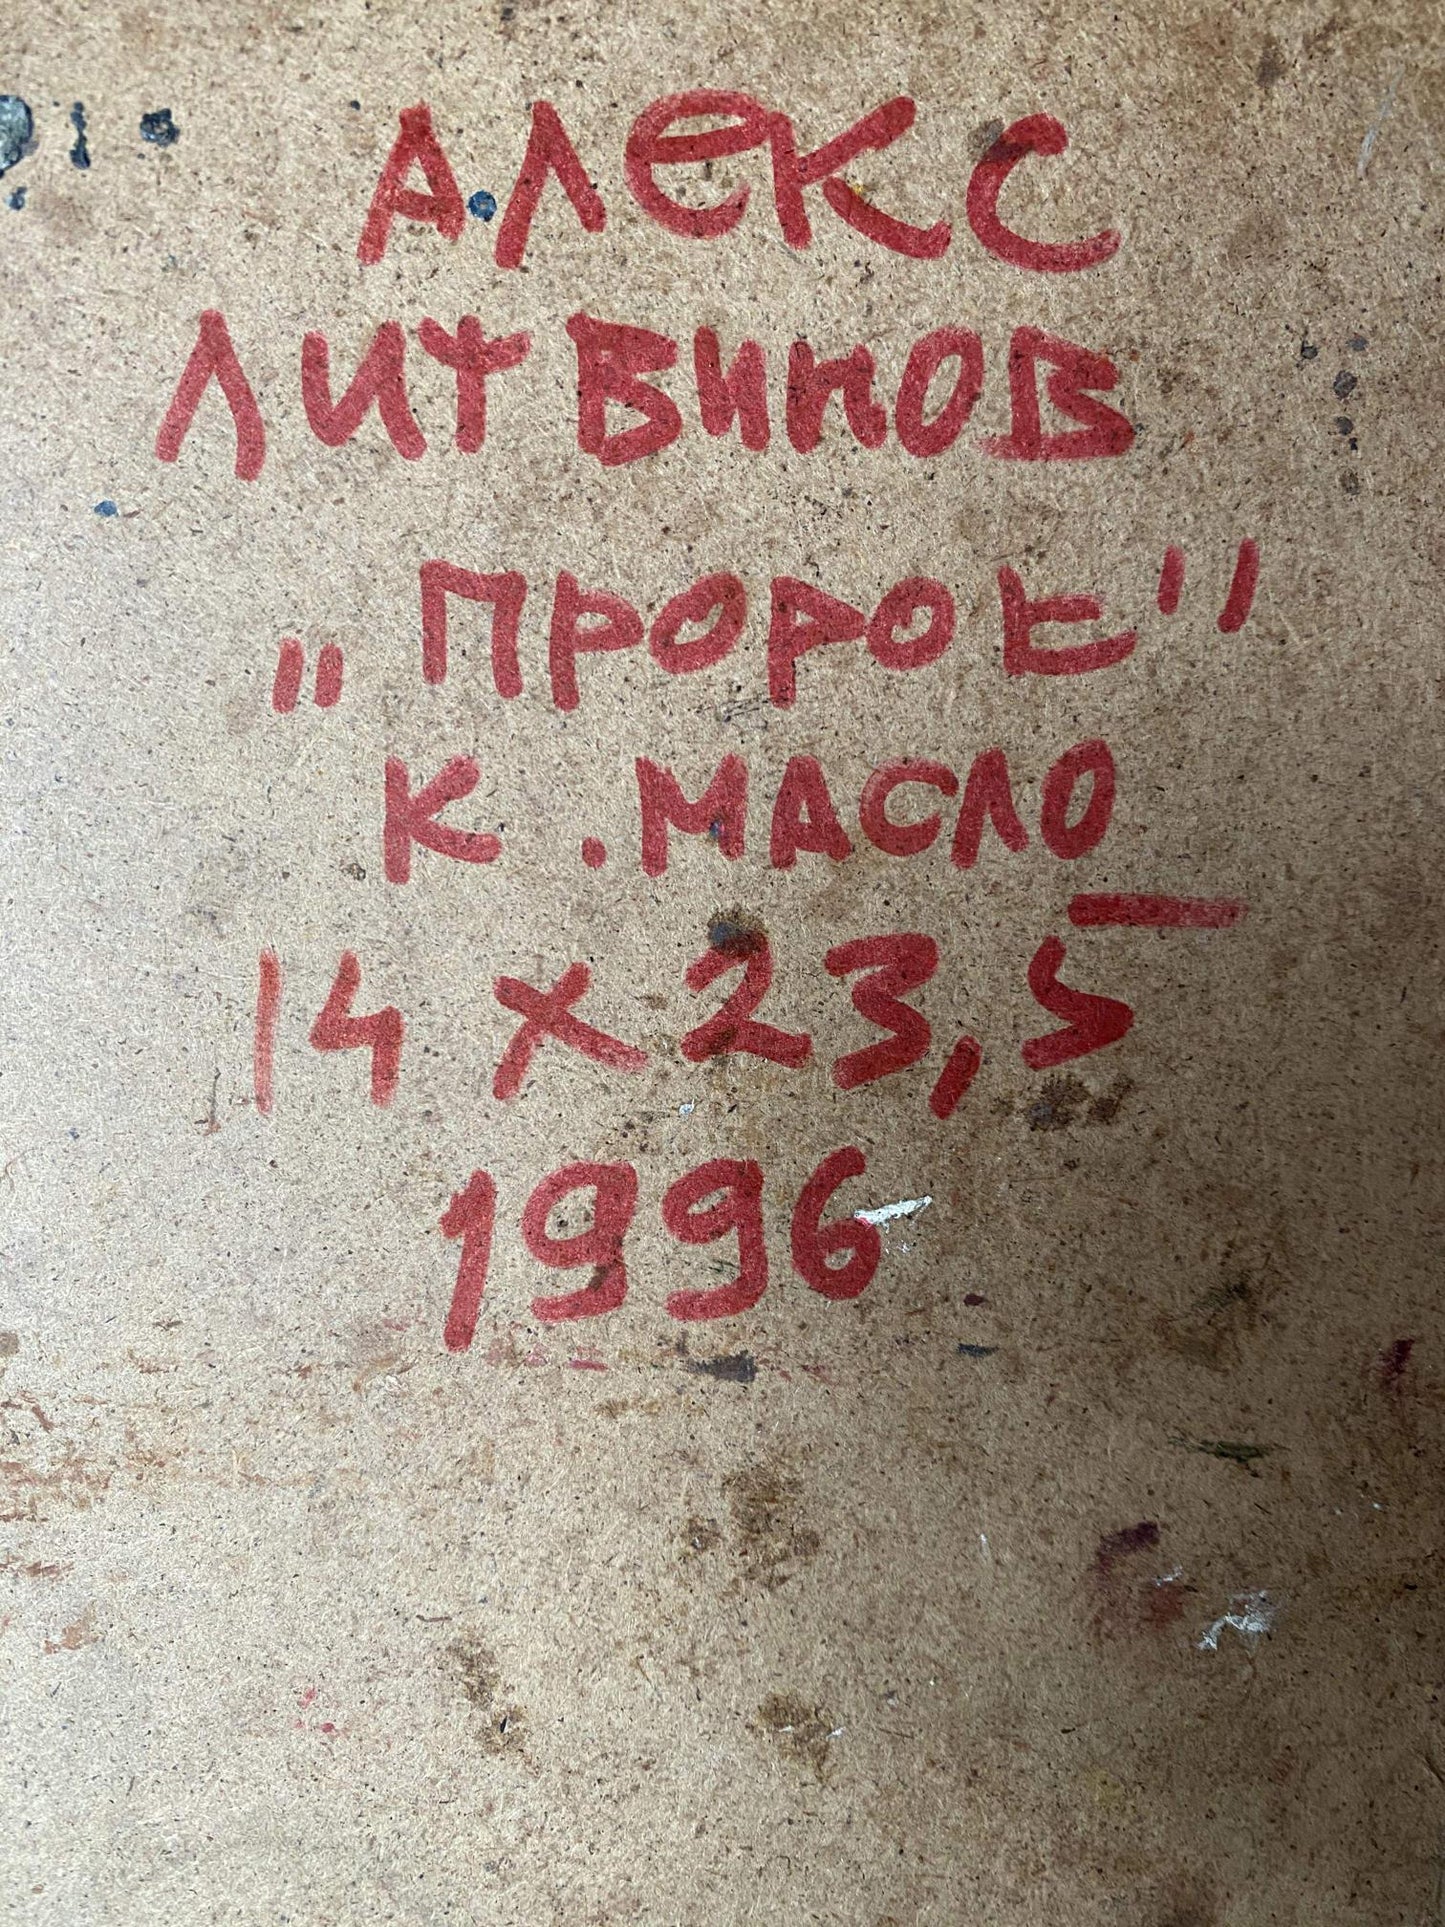 АЛЕКС
ЛИТВИНОВ
„ПРОРОК"
К. МАСЛО
14 х 23,5
1996